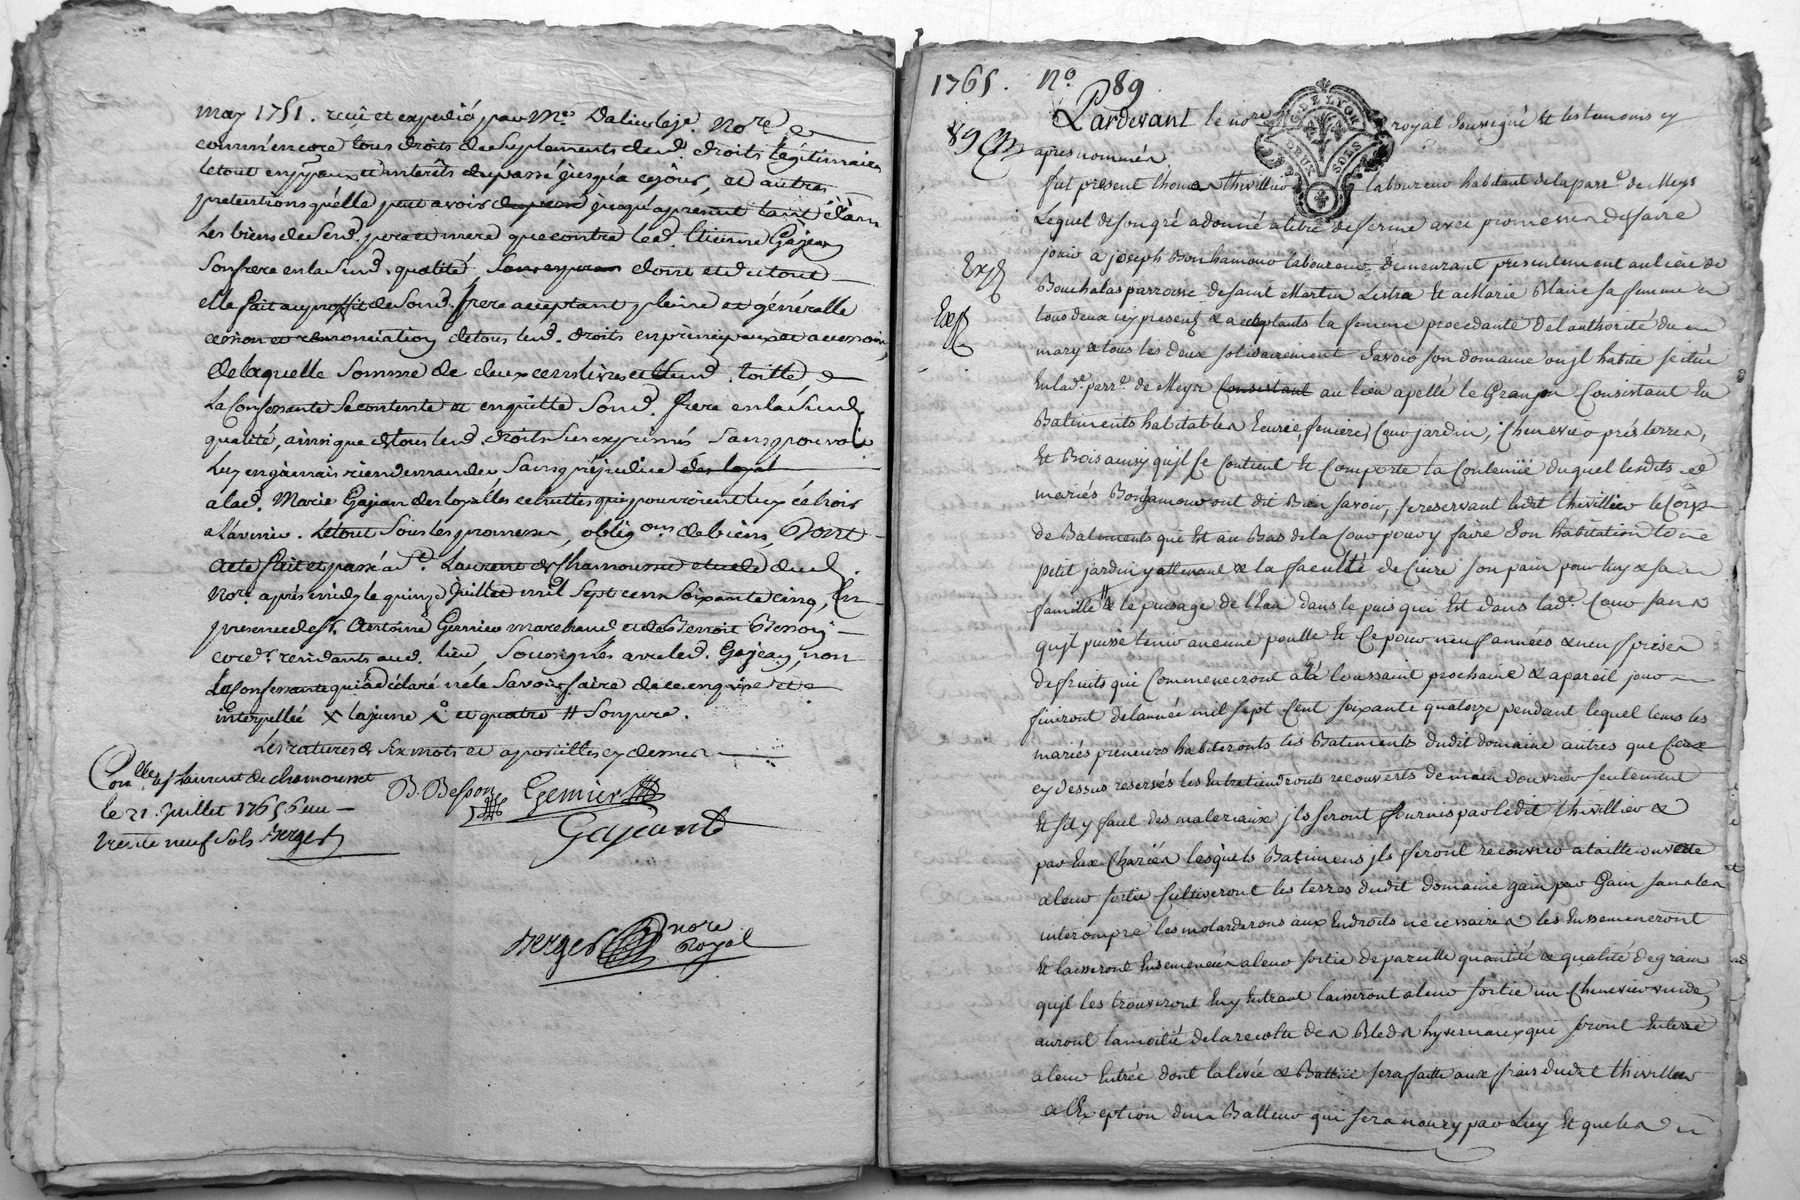 may 1751. recû et expedié par Me. Dalin lejᵉ. Nore. &
comm'encore tous droits de suplements desd. droits légitimaires
le tout en jpaux et interêts du passé jusqu'a ce jour, et autres
pretentions qu'elle peut avoir jusqu'apresent tant dans
les biens de sesd. pere et mere que contre led. Etienne Gajean
son frere en lasusd. qualité, dont et du tout
elle fait au proffit de sond. frere acceptant pleine et générralle
cession et renonciation de tous sesd. droits en principaux et accessoires,
de laquelle somme de deux cens livres et susd. toille
la Confessante se contente et en quitte sond. frere en la susd.
qualité, ainsi que de tous sesd. droits sus exprimés sans pouvoir
luy en jamais rien demander sans préjudice
a lad. Marie Gajean des loyalles echuttes qui pourroient luy échoir
a l'avenir. Le tout sous les promesses, obligons. de biens, Dont
acte fait et passé à St. Laurent de Chamousset etude dud.
Nore. aprés midy le quinze Juillet mil sept cens soixante cinq, En
presence de sr. Antoine Gernier marchand et de Benoit Besson
cord. residants aud. lieu, soussignés avec led. Gajean, non
la Confessante qui a déclaré ne le savoir faire de ce enquise et
interpellée x lajeune et quatre # son pere.
Les ratures de six mots et apostilles cy dessus
Conllé. à St Laurent de chamousset
le 21. Juillet 1765 6 eme
trente neuf sols Berger
B. Besson
Gernier
Gajean
Berger nore Royal
1765. No. 89
89 Cm
Expé
Exp
G. DE LYON
DEUX SOLS
Pardevant le nore royal soussigné Et les temoins cy
apres nommés,
fut present thomas thivillier laboureur habitant de la parre. de Meys
Lequel de son gré a donné a titre de ferme avec promesses de faire
jouir a joseph Bonhamour laboureur demeurant presentement au lieu de
Bouchalas parroisse de saint Martin Lestra Et a Marie Blanc sa femme
tous deux icy presents & acceptants la femme procedante de l'authorité du
mary & tous les deux solidairement Savoir son domaine ou jl habite scitué
En lad. parre. de Meys Consistant au lieu apellé le Granjon Consistant En
Batiments habitables Ecurie, feniere, Cour jardin, Chenevier prés terres,
Et Bois ainsy qu'jl se Contient Et Comporte la Contenüe duquel lesdits
mariés Bonhamour ont dit Bien savoir, se reservant ledit thivillier le Corps
de Batiments qui Est au Bas de la Cour pour y faire son habitation le
petit jardin y attenant & la faculté de Cuire son pain pour luy & sa
famille # & le puisage de l'Eau dans le puis qui Est dans lad. Cour sans
qu'jl puisse tenir aucune poulle Et Ce pour neuf années & neuf prises
de fruits qui Commenceront a la toussaint prochaine & a pareil jour
finiront de l'année mil sept Cent soixante quatorze pendant lequel tems les
mariés preneurs habiteronts les Batiments dudit domaine autres que Ceux
cy dessus reservés les Entretiendronts recouverts de main d'ouvrier seulement
Et s'il y faut des materiaux jls seront fournis par ledit thivillier &
par Eux Chariés lesquels Batimens jls feront recouvrir a taille ouverte
a leur sortie Cultiveront les terres dudit domaine gain par Gain sans les
interompre les molarderons aux Endroits necessaires les Enssemenceront
Et laisseront Ensemencés a leur sortie de pareille quantité & qualité de grain
qu'jl les trouveront En y Entrant laisseront a leur sortie un Chenevier vuide
auront la moitié de la recolte des Bleds hyvernaux qui seront En terre
a leur Entrée dont la levée & Batture sera faitte aux frais dudit thivillier
a l'Exeption d'un Batteur qui sera noury par Luy Et que les